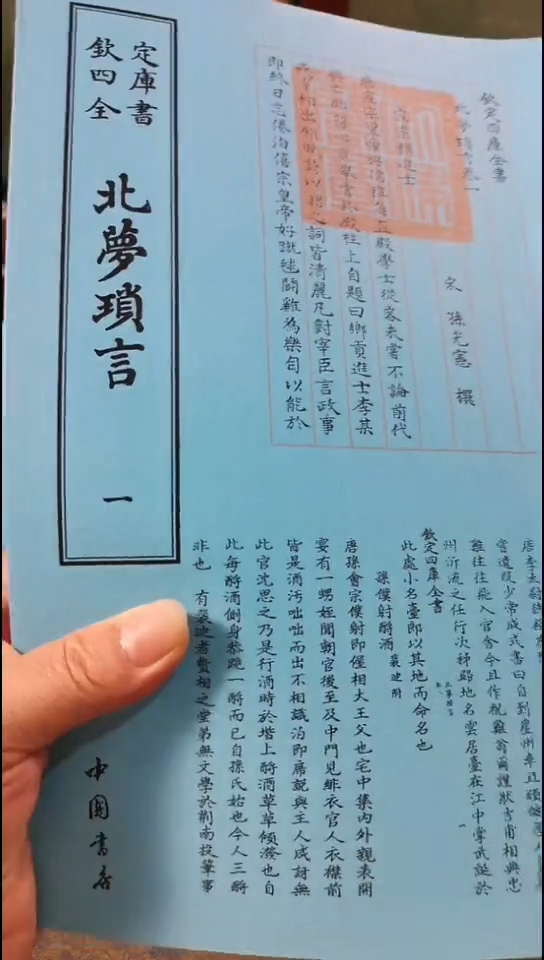 欽定
四庫
全書
北夢瑣言
一
欽定四庫全書
北夢瑣言卷一
宋 孫光憲 撰
宣宗稱進士
唐宣宗皇帝好儒雅每直殿學士從容未嘗不論前代
興亡頗留心貢舉嘗於殿柱上自題曰鄉貢進士李某
或宰相出鎮賦詩以贈之詞皆清麗凡對宰臣言政事
即終日忘倦洎僖宗皇帝好蹴毬鬭雞為樂自以能於
唐李太尉
官遺段少常成式書曰自到崖州幸且頑健
雞往往飛入官舍今且作祝雞翁爾謹狀吉甫相典忠
州泝流之任行次秭歸地名雲居臺在江中掌武誕於
欽定四庫全書
北夢瑣言
此處小名臺郎以其地而命名也
孫僕射酹酒 裴迪附
唐孫會宗僕射即偓相大王父也宅中集內外親表開
宴有一甥姪聞朝官後至及中門見緋衣官人衣襟前
皆是酒汚咄咄而出不相識洎即席說與主人咸訝無
此官沈思之乃是行酒時於堦上酹酒草草傾潑也自
此每酹酒側身恭跪一酹而已自孫氏始也今人三酹
非也 有裴迪者贄相之堂弟無文學於荊南投筆事
中國書店